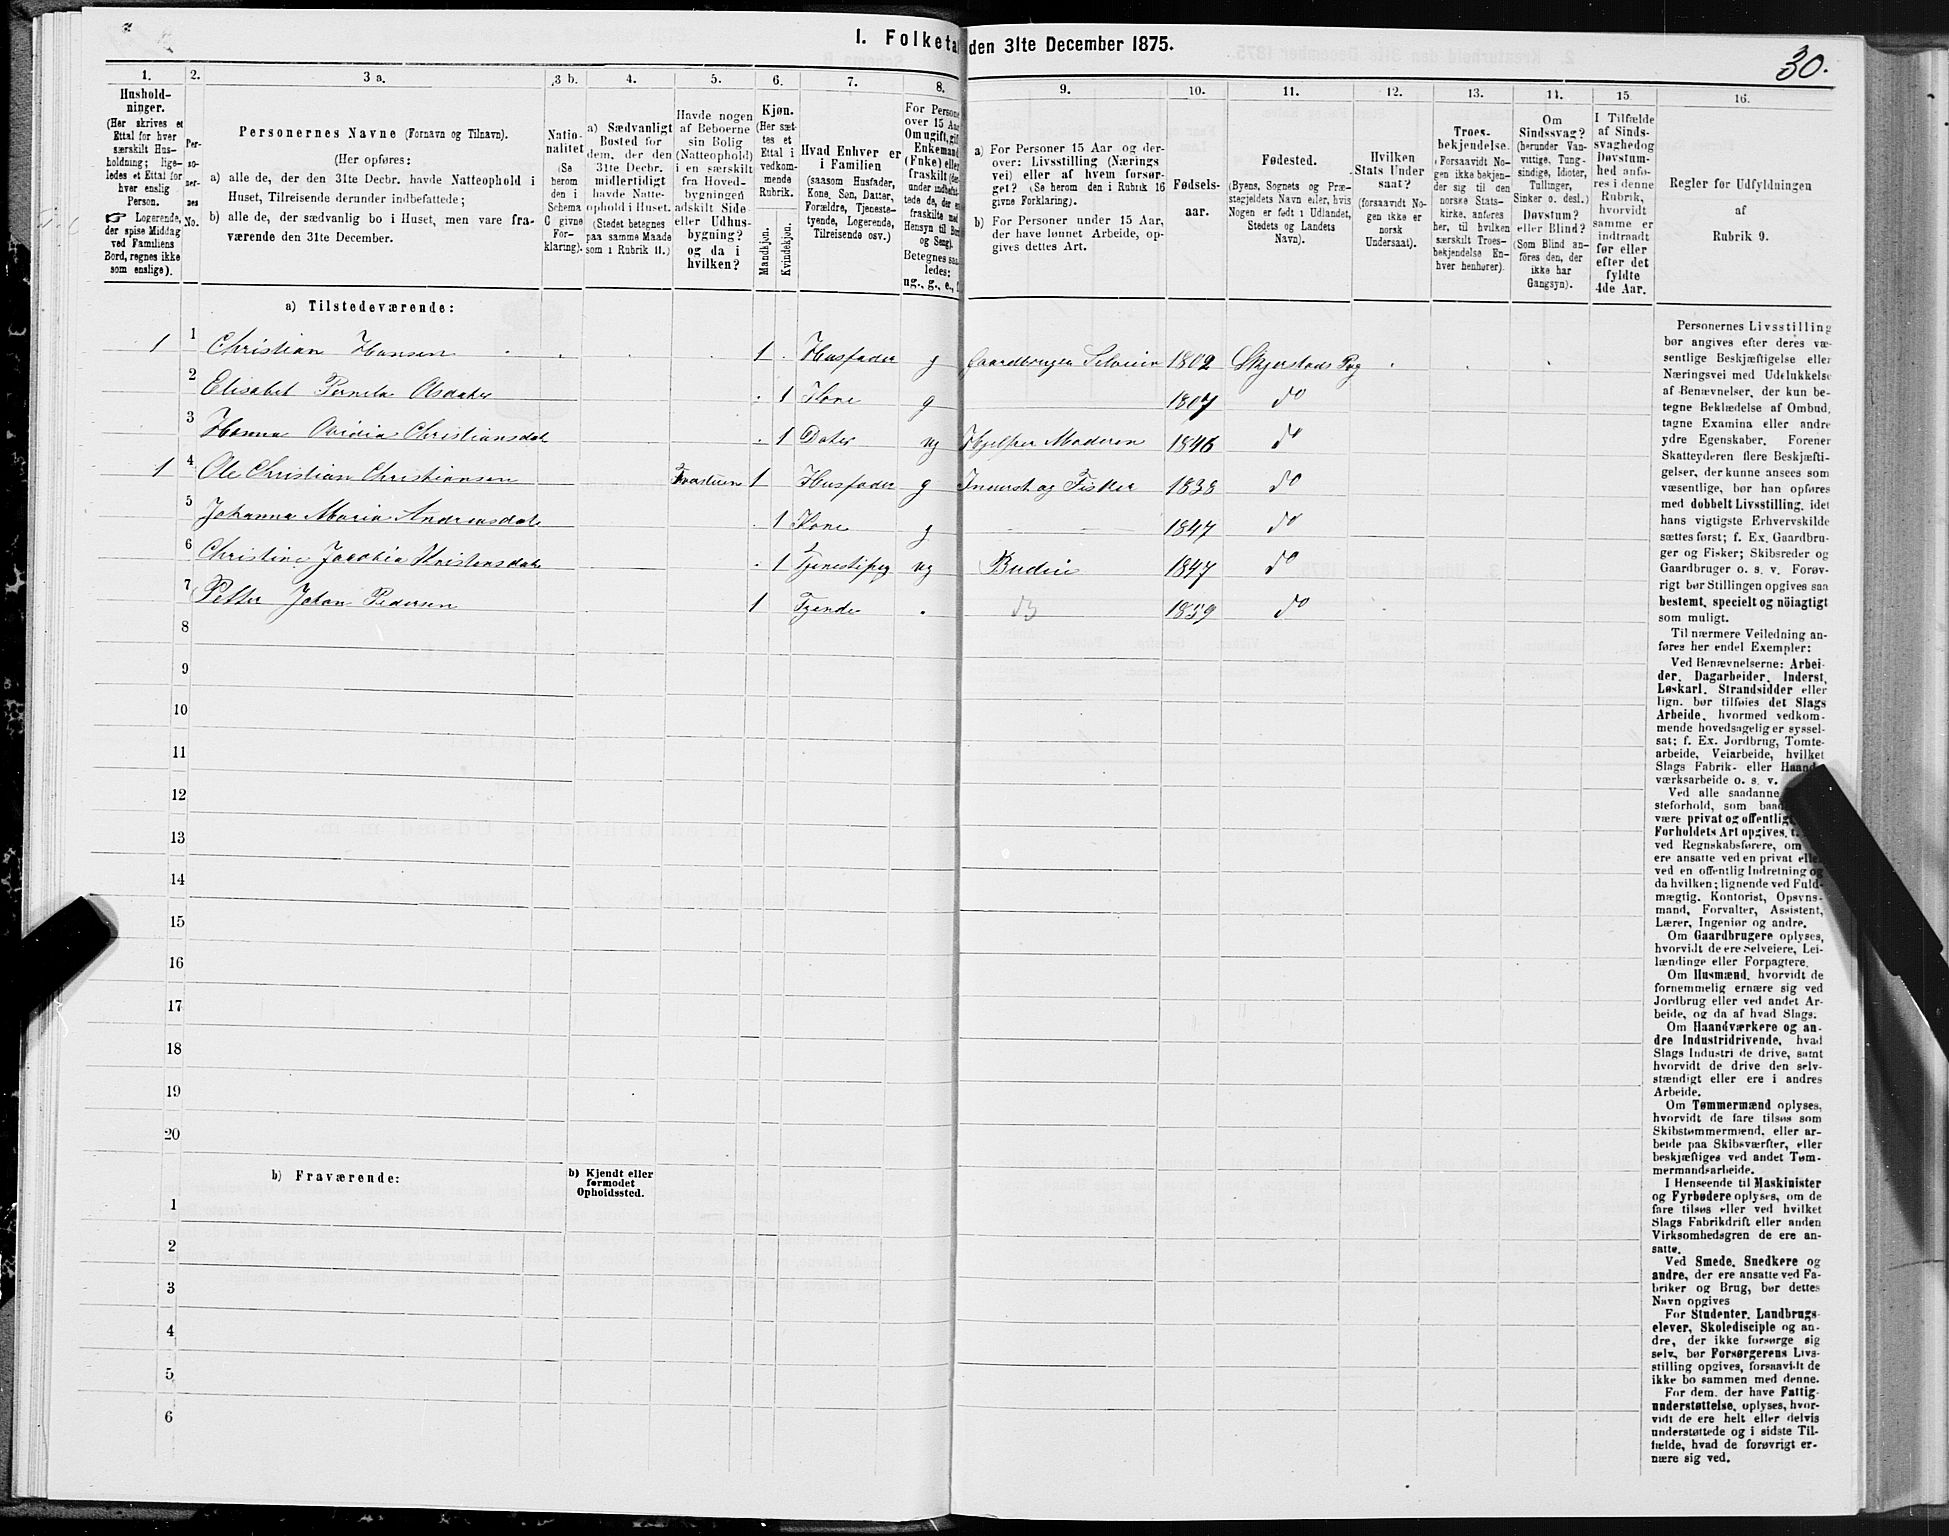 I. Folketæ den 31te December 1875.
30.
1.
Hushold-
ninger.
(Her skrives et
Ettal for hver
særskilt Hus-
holdning; lige-
ledes et Ettal for
hver enslig
Person.
☞ Logerende,
der spise Middag
ved Familiens
Bord, regnes ikke
som enslige).
2.
Per-
so-
ner-
nes
No.
3 a.
Personernes Navne (Fornavn og Tilnavn).
(Her opføres:
a) alle de, der den 31te Decbr. havde Natteophold i
Huset, Tilreisende derunder indbefattede;
b) alle de, der sædvanlig bo i Huset, men vare fra-
værende den 31te December.
3 b.
Natio-
nalitet
(Se
herom
den i
Schema
C givne
For-
klaring).
4.
a) Sædvanligt
Bosted for
dem, der den
31te Decbr.
midlertidigt
havde Natte-
ophold i Huset.
(Stedet betegnes
paa samme Maade
som i Rubrik II.)
5.
Havde nogen
af Beboerne
sin Bolig
(Natteophold)
i en særskilt
fra Hoved-
bygningen
adskilt Side-
eller Udhus-
bygning?
og da i
hvilken?
6.
Kjøn.
(Her sæt-
tes et
Ettal i
vedkom-
mende
Rubrik.
Mandkjøn.
Kvindekjøn.
7.
Hvad Enhver er
i Familien
(saasom Husfader,
Kone, Søn, Datter,
Forældre, Tjeneste-
tyende, Logerende,
Tilreisende osv.)
8.
For Persone
over 15 Aar
Om ugift, gift
Enkemand
(Enke) eller
fraskilt (der-
under indbefat-
tede de, der er
fraskilte med
Hensyn til Bord
og Seng).
Betegnes saa-
ledes:
ug., g., e., f.
9.
a) For Personer 15 Aar og der-
over: Livsstilling (Nærings
vei) eller af hvem forsør-
get? (Se herom den i Rubrik 16
givne Forklaring).
b) For Personer under 15 Aar,
der have lønnet Arbeide, op-
gives dettes Art.
10.
Fødsels-
aar.
11.
Fødested.
(Byens, Sognets og Præ-
stegjeldets Navn eller, hvis
Nogen er født i Udlandet,
Stedets og Landets
Navn).
12.
Hvilken
Stats Under
saat?
(forsaavidt No-
gen ikke er
norsk
Undersaat).
13.
Troes-
bekjendelse.
(Forsaavidt No-
gen ikke bekjen-
der sig til den
norske Stats-
kirke, anføres
her, til hvilken
særskilt Troes-
bekjendelse En-
hver henhører).
14.
Om
Sindssvag?
(herunder Van-
vittige, Tung-
sindige, Idioter,
Tullinger,
Sinker o. desl.)
Døvstum?
eller Blind?
(Som Blind an-
føres den, der
ikke har
Gangsyn).
15.
I Tilfælde
af Sinds-
svaghed og
Døvstum-
hed anfø-
res i denne
Rubrik,
hvorvidt
samme er
indtraadt
før eller
efter det
fyldte
4de Aar.
16.
Regler før Udfyldningen
af
Rubrik 9.
a) Tilstedeværende:
1 1 Christian Hansen 1 Husfader g Gaardbruger Selveier 1802 Skjerstads Pg
2 Elisabet Pernila Olsdater 1 Kone g 1807 do
3 Hanna Ovidia Christiansdat 1 Dater ug Hjelper Moderen 1846 do
1 4 Ole Christian Christiansen 1 Husfader g Inderst og Fisker 1838 do
5 Johanna Maria Andreasdat 1 Kone g 1847 do
6 Christine Jacobia Kristensdat 1 Tjenestepig ug Budeie 1847 do
7 Petter Johan Pedersen 1 Tjende do 1859 do
8
9
10
11
12
13
14
15
16
17
18
19
20
b) Fraværende:
b) Kjendt eller
formodet
Opholdssted.
1
2
3
4
5
6
Personernes Livsstilling
bør angives efter deres væ-
sentlige Beskjæftigelse eller
Næringsvei med Udelukkelse
af Benævnelser, der kun be-
tegne Beklædelse af Ombud,
tagne Examina eller andre
ydre Egenskaber. Forener
Skatteyderen flere Beskjæfti-
gelser, der kunne ansees som
væsentlige, bør han opføres
med dobbelt Livsstilling, idet
hans vigtigste Erhvervskilde
sættes først; f. Ex. Gaardbru-
ger og Fisker; Skibsreder og
Gaardbruger o. s. v. Forøv-
rigt bør Stillingen opgives saa
bestemt, specielt og nöiagtigt
som muligt.
Til nærmere Veiledning an-
føres her endel Exempler:
Ved Benævnelserne: Arbei-
der, Dagarbeider, Inderst,
Løskarl, Strandsidder eller
lign. bør tilføies det Slags
Arbeide, hvormed vedkom-
mende hovedsagelig er syssel-
sat; f. Ex. Jordbrug, Tomte-
arbeide, Veiarbeide, hvilket
Slags Fabrik- eller Haand-
værksarbeide o. s. v.
Ved alle saadanne
steforhold, som baade
være privat og offentligt
Forholdets Art opgives, t.
ved Regnskabsførere, om
ere ansatte ved en privat eller
ved en offentlig Indretning og
da hvilken; lignende ved Fuld-
mægtig, Kontorist, Opsyns-
mand, Forvalter, Assistent,
Lærer, Ingeniør og andre.
Om Gaardbrugere oplyses,
hvorvidt de ere Selveiere, Lei-
lændinge eller Forpagtere.
Om Husmænd, hvorvidt de
fornemmelig ernære sig ved
Jordbrug eller ved andet Ar-
beide, og da af hvad Slags.
Om Haandværkere og an-
dre Industridrivende, hvad
Slags Industri de drive, samt
hvorvidt de drive den selv-
stændigt eller ere i andres
Arbeide.
Om Tømmermænd oplyses,
hvorvidt de fare tilsøs som
Skibstømmermænd, eller ar-
beide paa Skibsværfter, eller
beskjæftiges ved andet Tøm-
mermandsarbeide.
I Henseende til Maskinister
og Fyrbødere oplyses, om de
fare tilsøs eller ved hvilket
Slags Fabrikdrift eller anden
Virksomhedsgren de ere an-
satte.
Ved Smede, Snedkere og
andre, der ere ansatte ved Fa-
briker og Brug, bør dettes
Navn opgives
For Studenter, Landbrugs-
elever, Skoledisciple og an-
dre, der ikke forsørge sig
selv, bør Forsørgerens Livs-
stilling opgives, forsaavidt de
ikke bo sammen med denne.
For dem, der have Fattig-
understøttelse, oplyses, hvor-
vidt de ere helt eller delvis
understøttede og i sidste Til-
fælde, hvad de forøvrigt er-
nære sig ved.